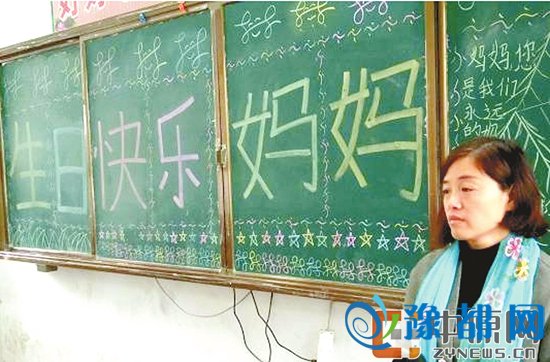 生日快乐 妈妈
妈妈,您
是我们
永远
的妈
中源网
ZYNEWS.CN
豫都网